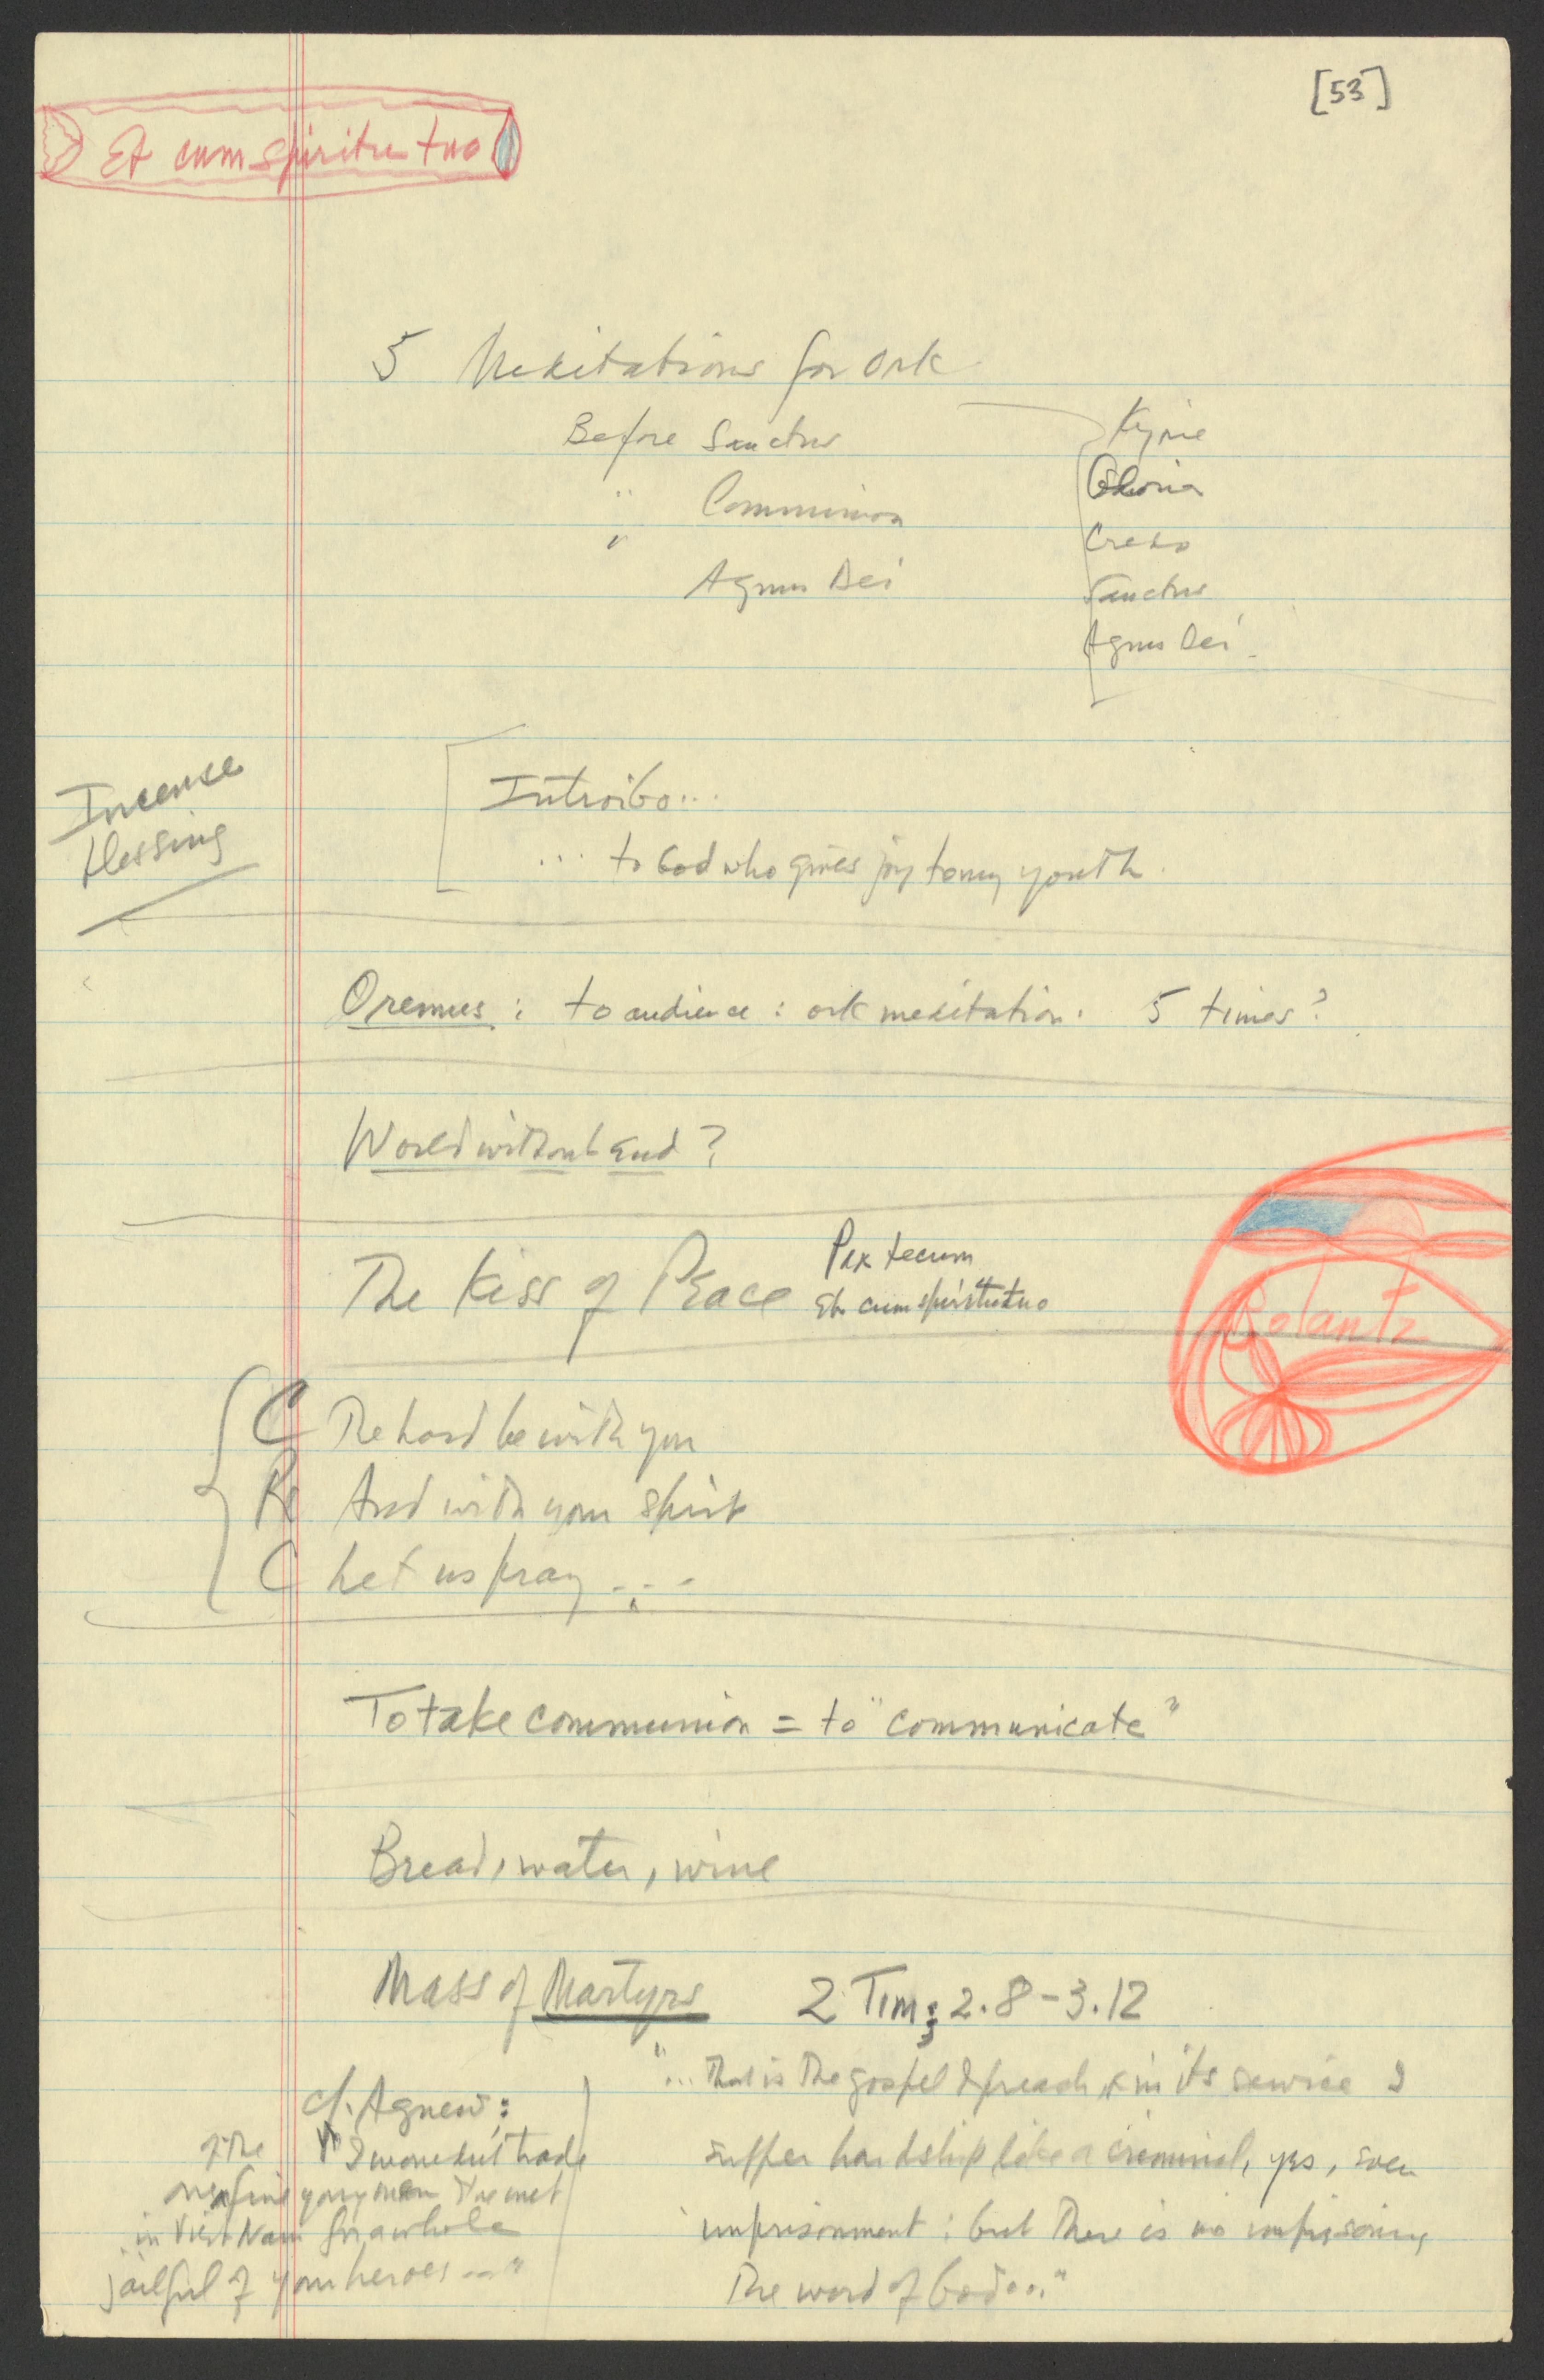 [53]
Et cum spiritu tuo
5 Meditations for Ork
Before Sanctus
" Communion
" Agnus Dei
Kyrie
Gloria
Credo
Sanctus
Agnus Dei
Incense
blessing
Introibo...
... to God who gives joy to my youth.
Oremus: to audience: ork meditation. 5 times?
World without End?
The Kiss of Peace
Pax tecum
Et cum spiritu tuo
Bolantz
C The Lord be with you
R And with your spirit
C Let us pray . . .
To take communion = to "communicate"
Bread, water, wine
Mass of Martyrs 2 Tim: 2.8-3.12
"... That is the gospel I preach, & in its service I
suffer hardship like a criminal, yes, even
imprisonment: but there is no imprisoning
the word of God..."
cf. Agnew:
"I wouldn't trade
one of the fine young men I've met
in Viet Nam for a whole
jailful of your heroes --"